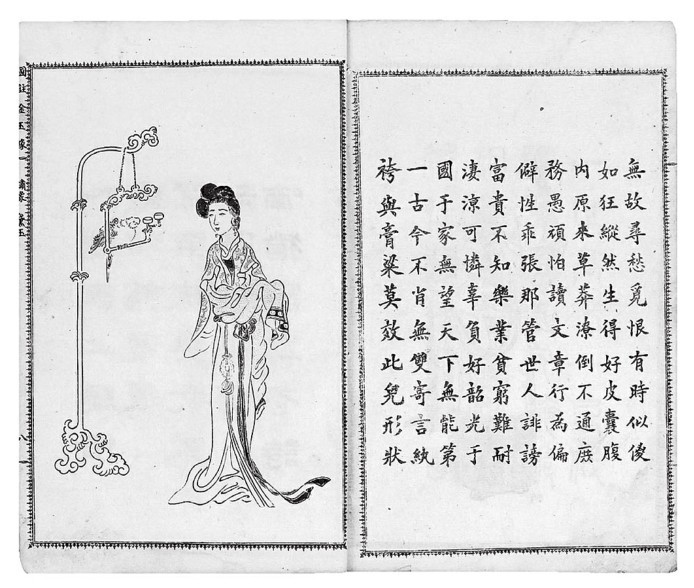 無故尋愁覓恨有時似傻
如狂縱然生得好皮囊腹
內原來草莽潦倒不通庶
務愚頑怕讀文章行為偏
僻性乖張那管世人誹謗
富貴不知樂業貧窮難耐
淒涼可憐辜負好韶光于
國于家無望天下無能第
一古今不肖無雙寄言紈
袴與膏粱莫效此兒形狀
註金玉緣